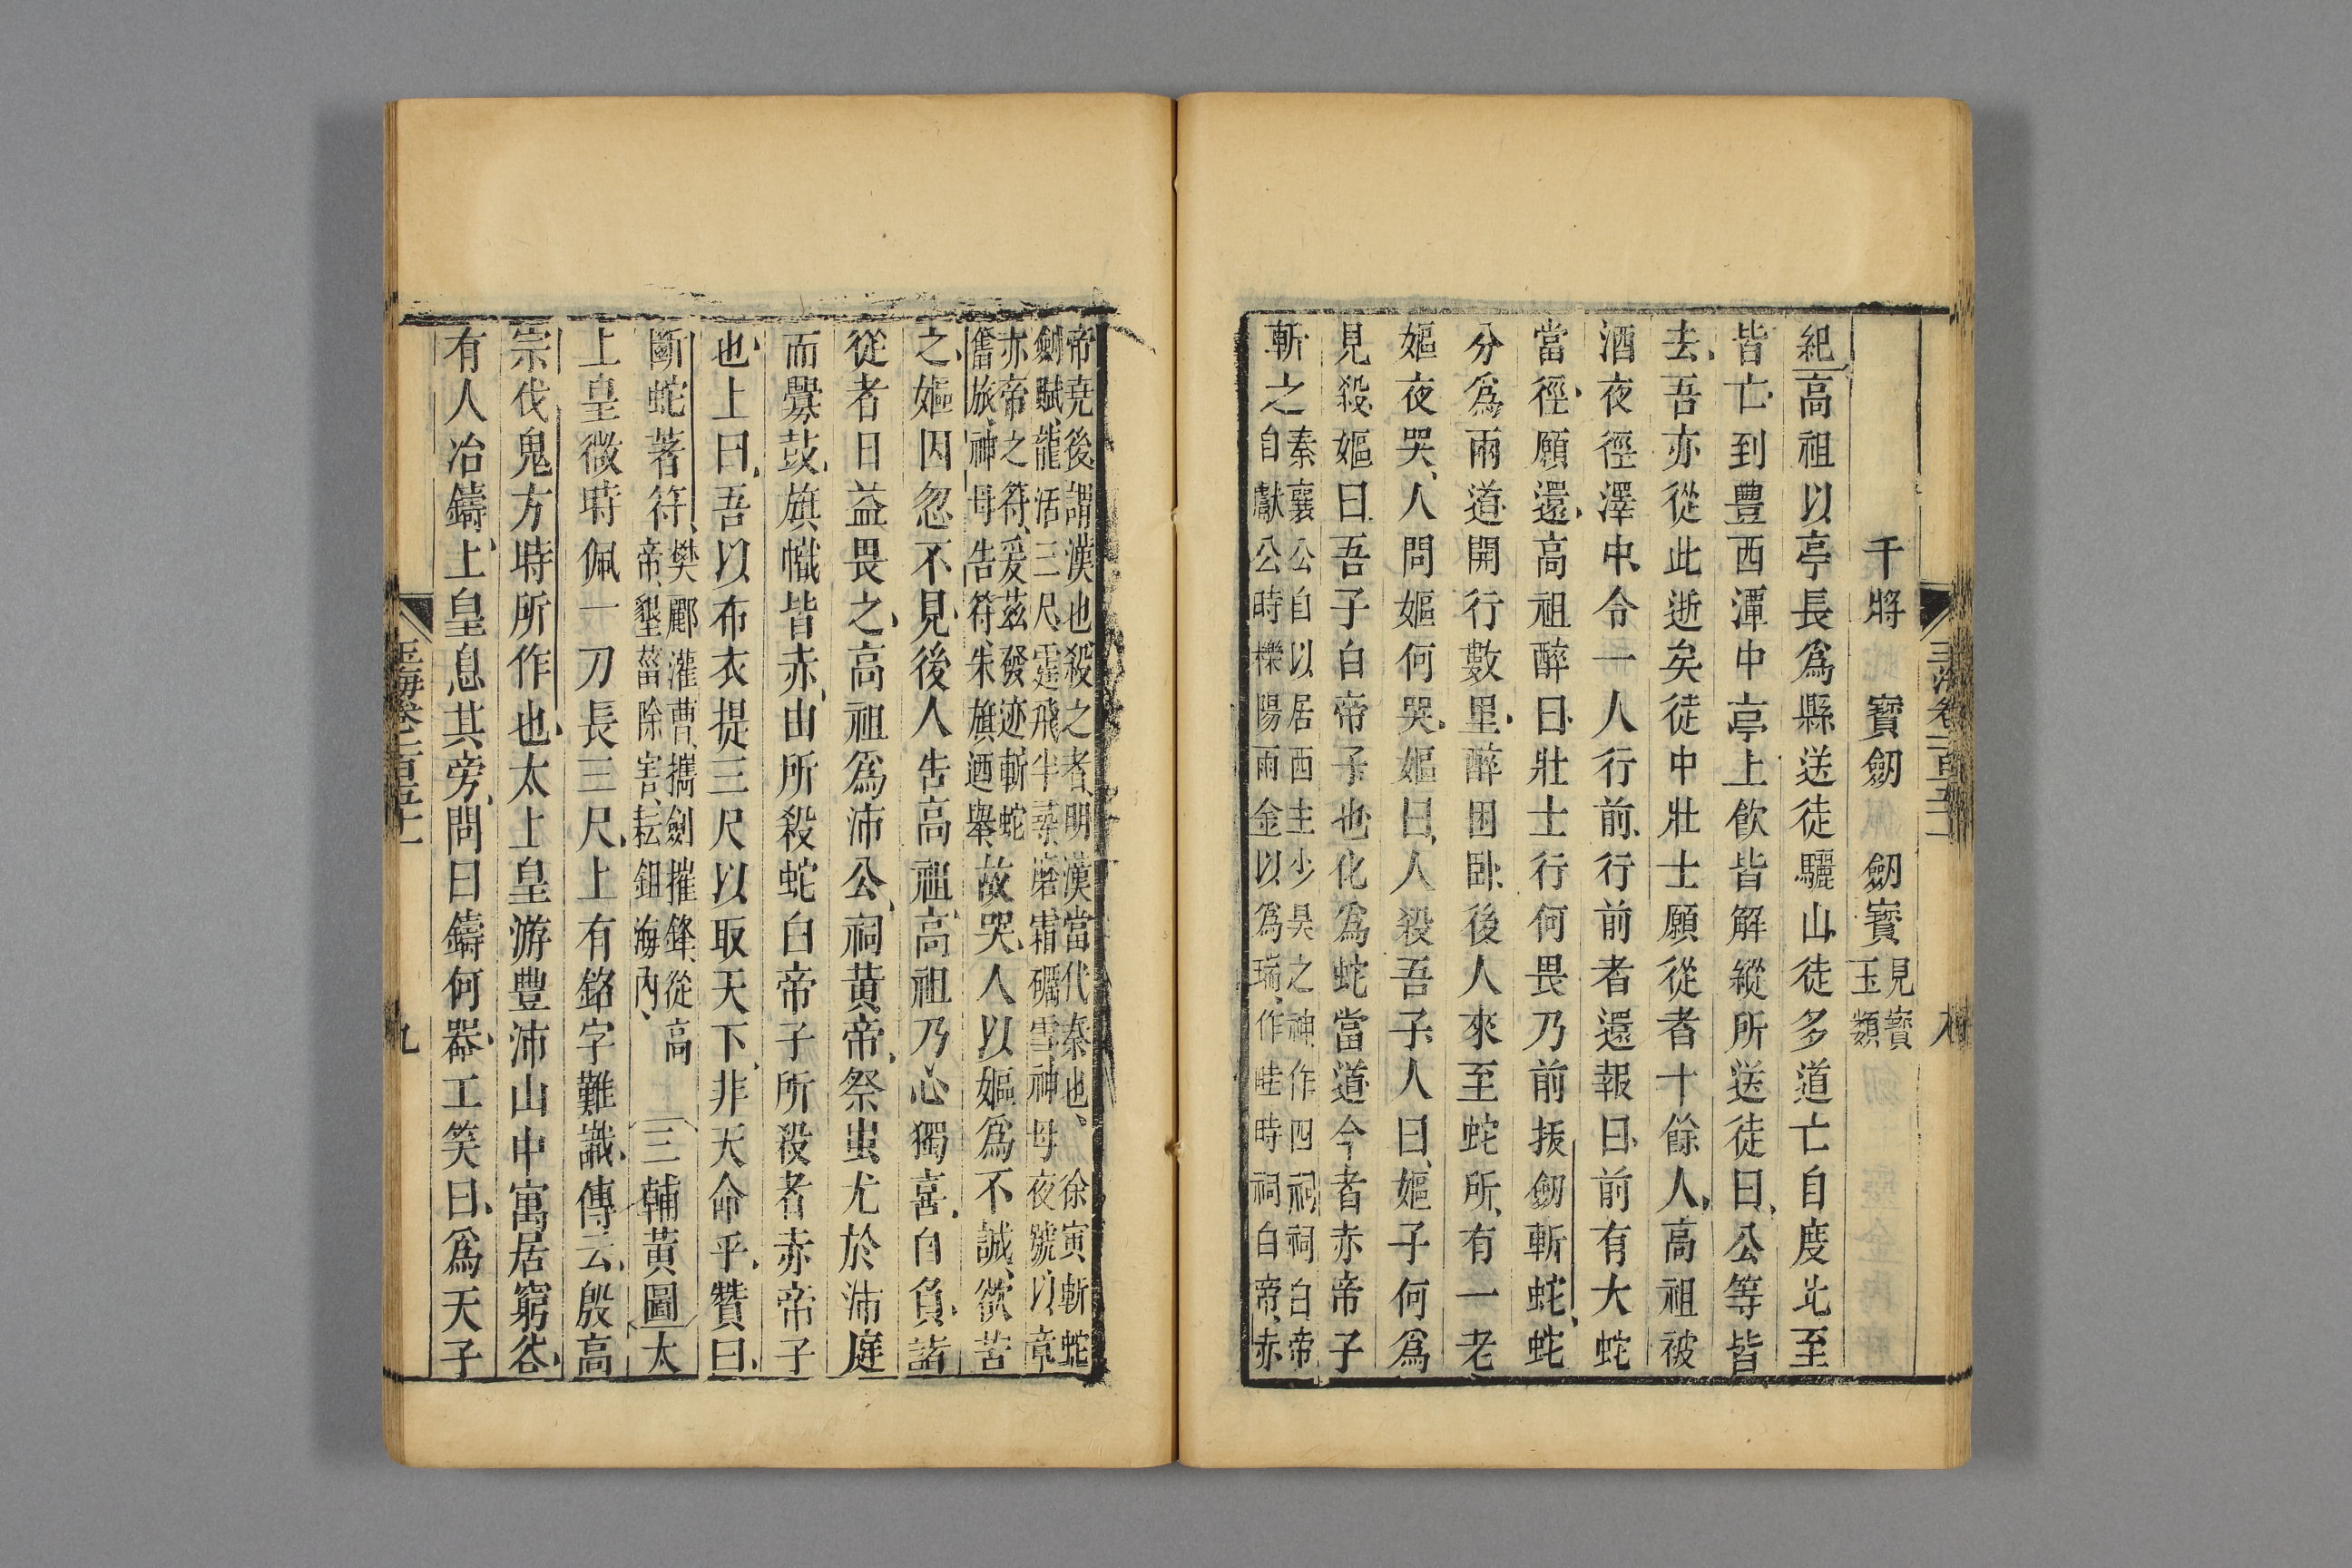 干將 寶劒 劒寶見寶玉類
紀高祖以亭長爲縣送徒驪山徒多道亡自度比至
皆亡到豐西澤中亭上飲皆解縱所送徒曰公等皆
去吾亦從此逝矣徒中壯士願從者十餘人高祖被
酒夜徑澤中令一人行前行前者還報曰前有大蛇
當徑願還高祖醉曰壯士行何畏乃前拔劒斬蛇蛇
分爲兩道開行數里醉困臥後人來至蛇所有一老
嫗夜哭人問嫗何哭嫗曰人殺吾子人曰嫗子何爲
見殺嫗曰吾子白帝子也化爲蛇當道今者赤帝子
斬之秦襄公自以居西主少昊之神作四祠祠白帝
自獻公時櫟陽雨金以爲瑞作畦時祠白帝赤
帝堯後謂漢也殺之者明漢當代秦也徐寅斬蛇
劒賦龍活三尺霆飛半尋磨霜礪雪神母夜號以章
赤帝之符爰茲發迹斬蛇
奮旅神母告符朱旗迺舉故哭人以嫗爲不誠欲苦
之嫗因忽不見後人告高祖高祖乃心獨喜自負諸
從者日益畏之高祖爲沛公祠黃帝祭蚩尤於沛庭
而釁鼓旗幟皆赤由所殺蛇白帝子所殺者赤帝子
也上曰吾以布衣提三尺以取天下非天命乎贊曰
斷蛇著符樊酈灌曹攜劍摧鋒從高
帝墾菑除害耘鉏海內 三輔黃圖太
上皇微時佩一刀長三尺上有銘字難識傳云殷高
宗伐鬼方時所作也太上皇游豐沛山中寓居窮谷
有人冶鑄上皇息其旁問曰鑄何器工笑曰爲天子
九